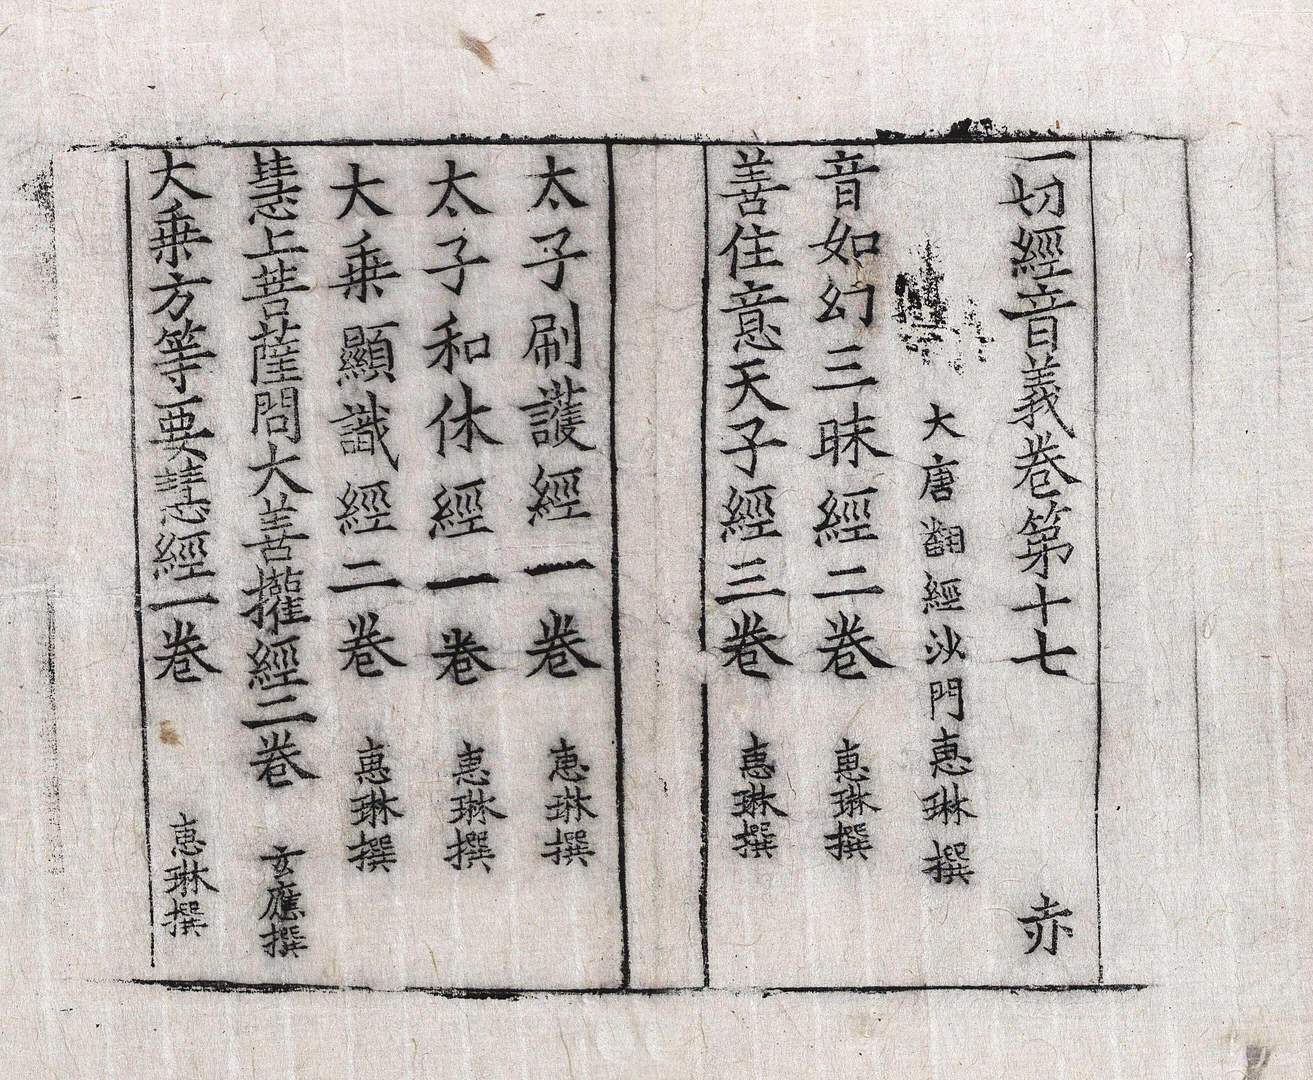 一切經音義卷第十七 赤
大唐翻經沙門惠琳撰
音如幻三昧經二卷 惠琳撰
善住意天子經三卷 惠琳撰
太子刷護經一卷 惠琳撰
太子和休經一卷 惠琳撰
大乗顯識經二卷 惠琳撰
慧上菩薩問大善攉經二卷 玄應撰
大乗方等要慧經一卷 惠琳撰